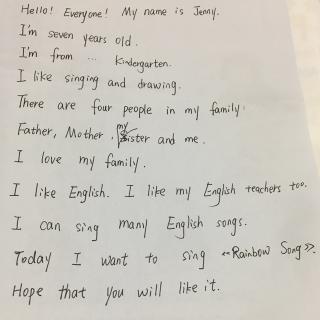 Hello! Everyone! My name is Jenny.
I'm seven years old.
I'm from ... kindergarten.
I like singing and drawing.
There are four people in my family.
Father, Mother, my sister and me.
I love my family.
I like English. I like my English teachers too.
I can sing many English songs.
Today I want to sing <<Rainbow Song>>.
Hope that you will like it.